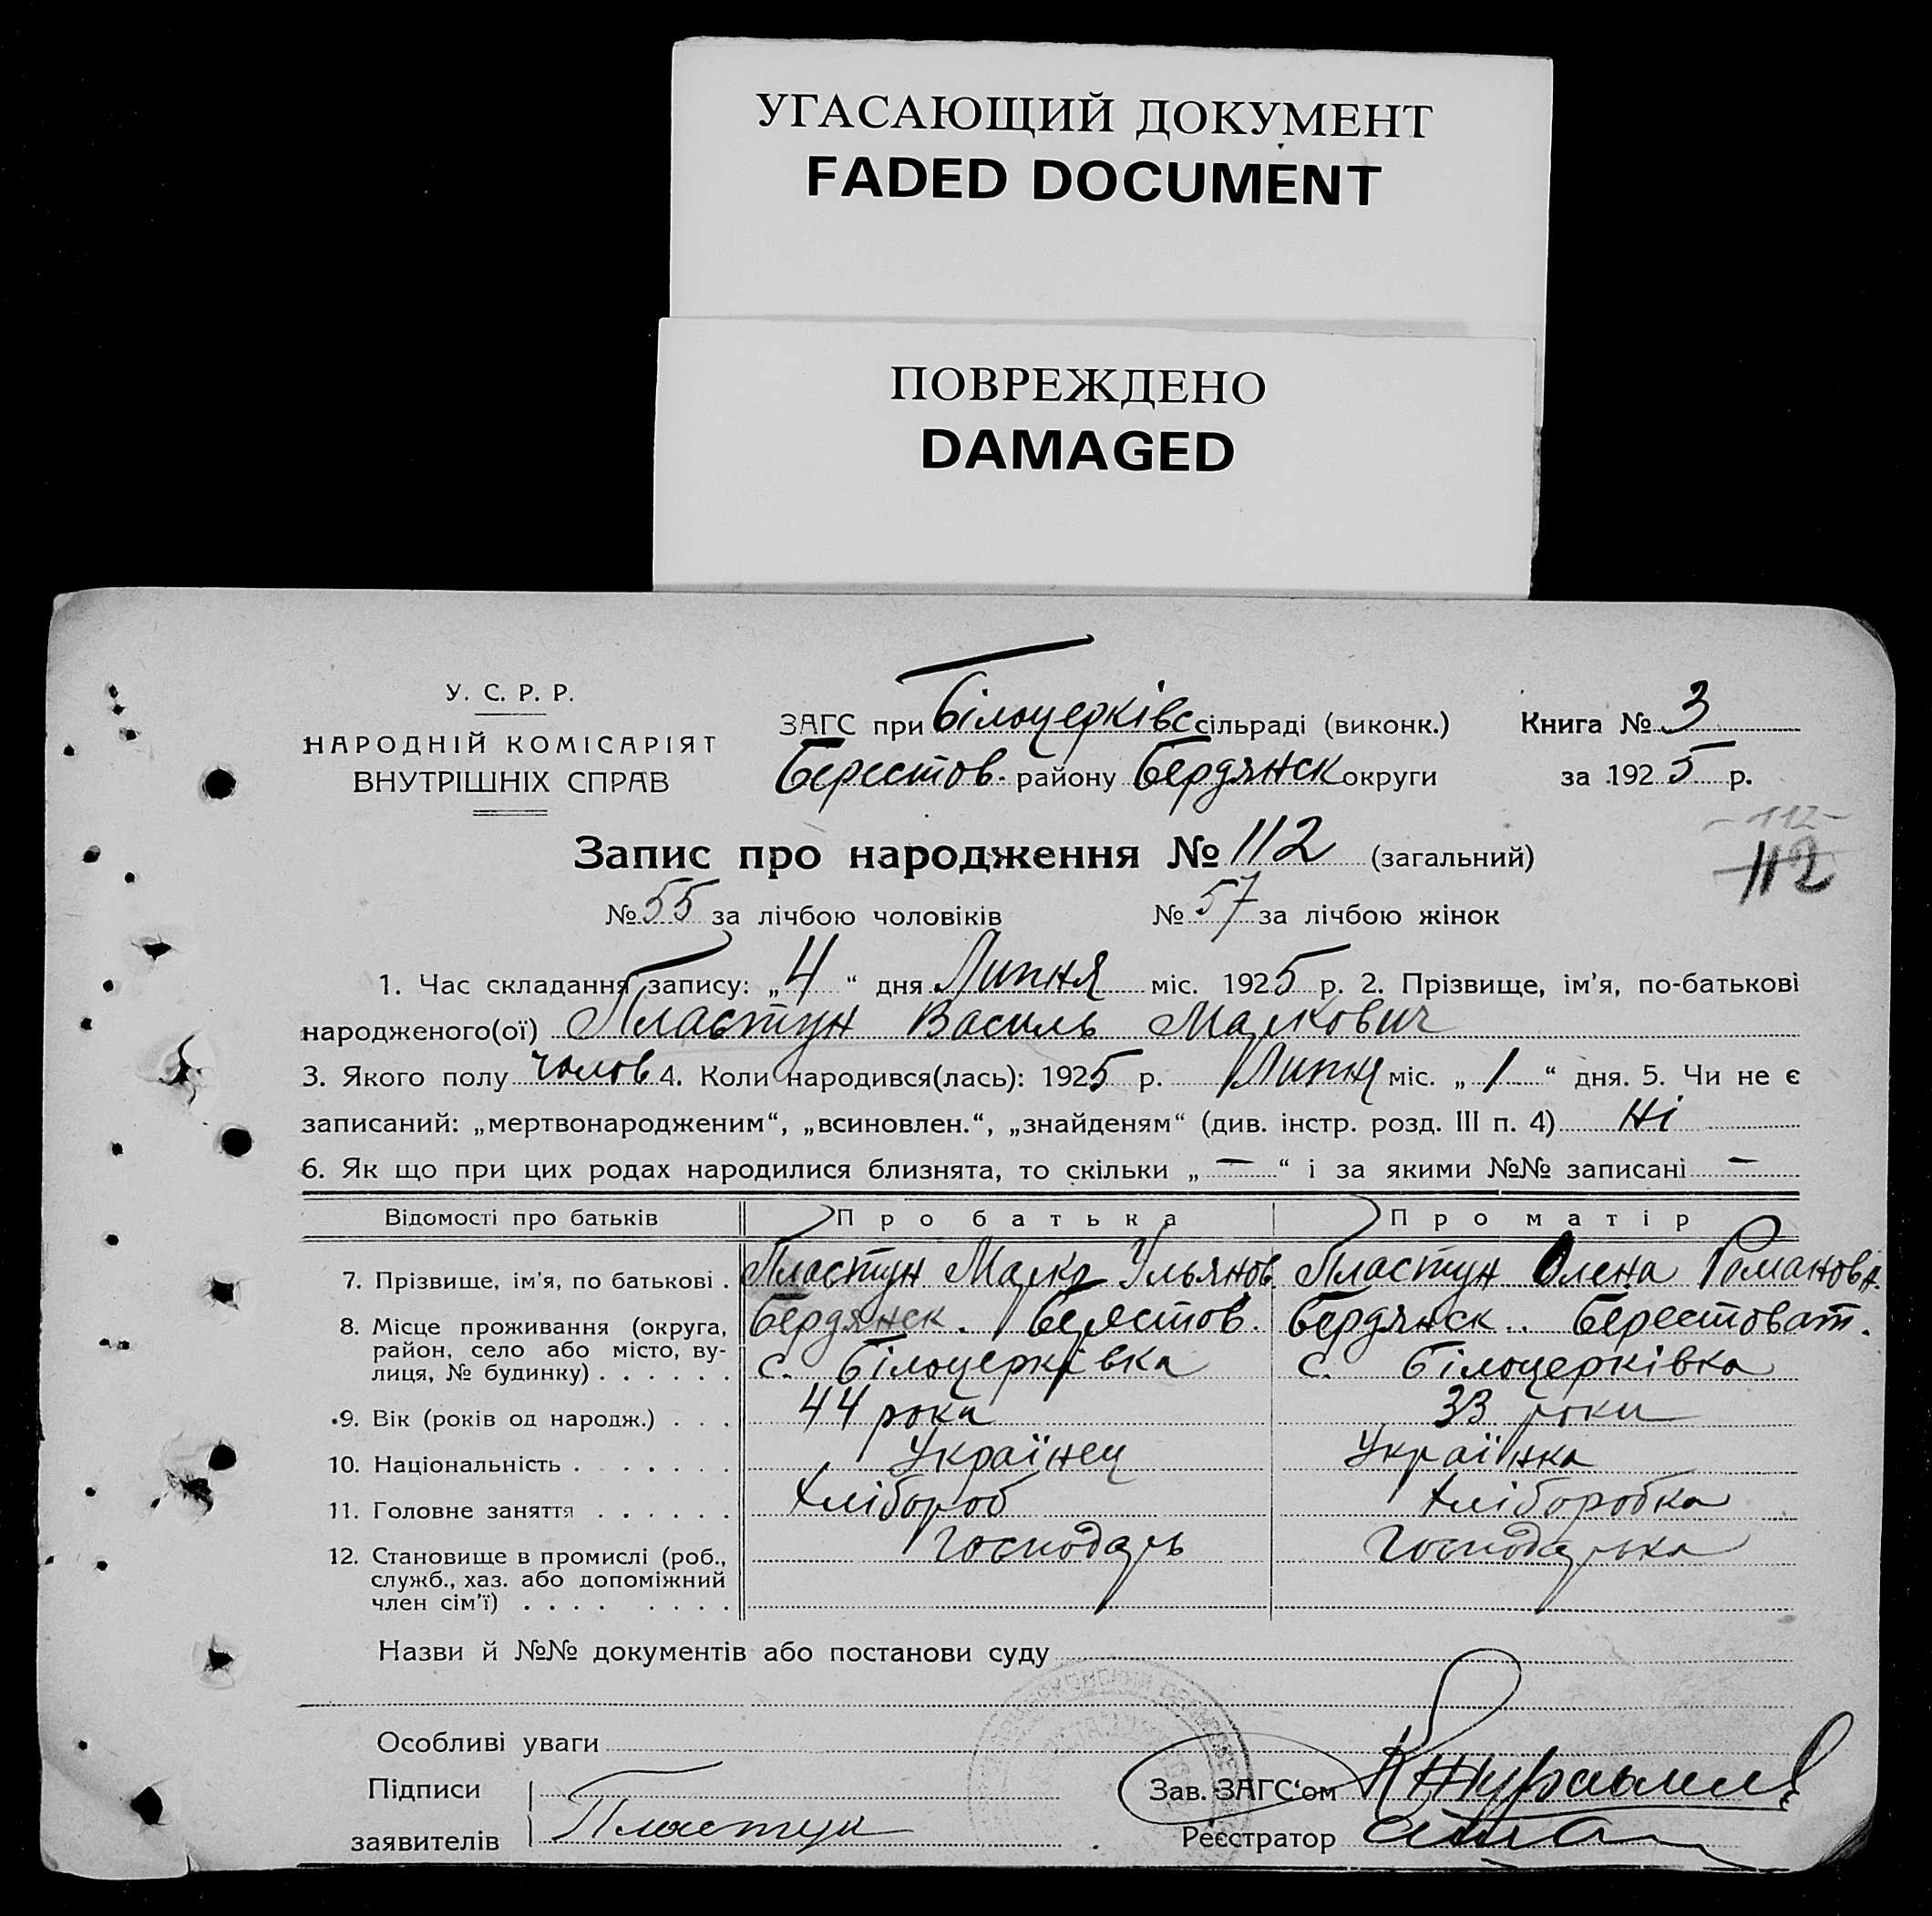 УГАСАЮЩИЙ ДОКУМЕНТ
FADED DOCUMENT
ПОВРЕЖДЕНО
DAMAGED
У. С. Р. Р.
НАРОДНІЙ КОМІСАРІЯТ
ВНУТРІШНІХ СПРАВ
ЗАГС при Білоцерківс сільраді (виконк.) Книга № 3
Берестов. району Бердянск округи за 1925 р.
- 112 -
Запис про народження № 112 (загальний) 112
№ 55 за лічбою чоловіків № 57 за лічбою жінок
1. Час складання запису: „ 4 “ дня Липня міс. 1925 р. 2. Прізвище, ім'я, по-батькові
народженого(ої) Пластун Василь Маркович
3. Якого полу чолов 4. Коли народився(лась): 1925 р. Липня міс. „ 1 “ дня. 5. Чи не є
записаний: „мертвонародженим“, „всиновлен.“, „знайденям“ (див. інстр. розд. III п. 4) Ні
6. Як що при цих родах народилися близнята, то скільки „ — “ і за якими №№ записані —
Відомості про батьків Про батька Про матір
7. Прізвище, ім'я, по батькові . Пластун Марко Ульянов. Пластун Олена Романовн.
8. Місце проживання (округа, Бердянск. Берестов. Бердянск.. Берестоват.
район, село або місто, ву-
лиця, № будинку) . . . . . . с. Білоцерківка с. Білоцерківка
9. Вік (років од народж.) . . . 44 рока 33 роки
10. Національність . . . . . . Українец Українка
11. Головне заняття . . . . . . Хлібороб Хліборобка
12. Становище в промислі (роб., Господарь Господарька
служб., хаз. або допоміжний
член сім'ї) . . . . . . . .
Назви й №№ документів або постанови суду
Особливі уваги
Підписи Зав. ЗАГС'ом
заявителів Пластун Реєстратор